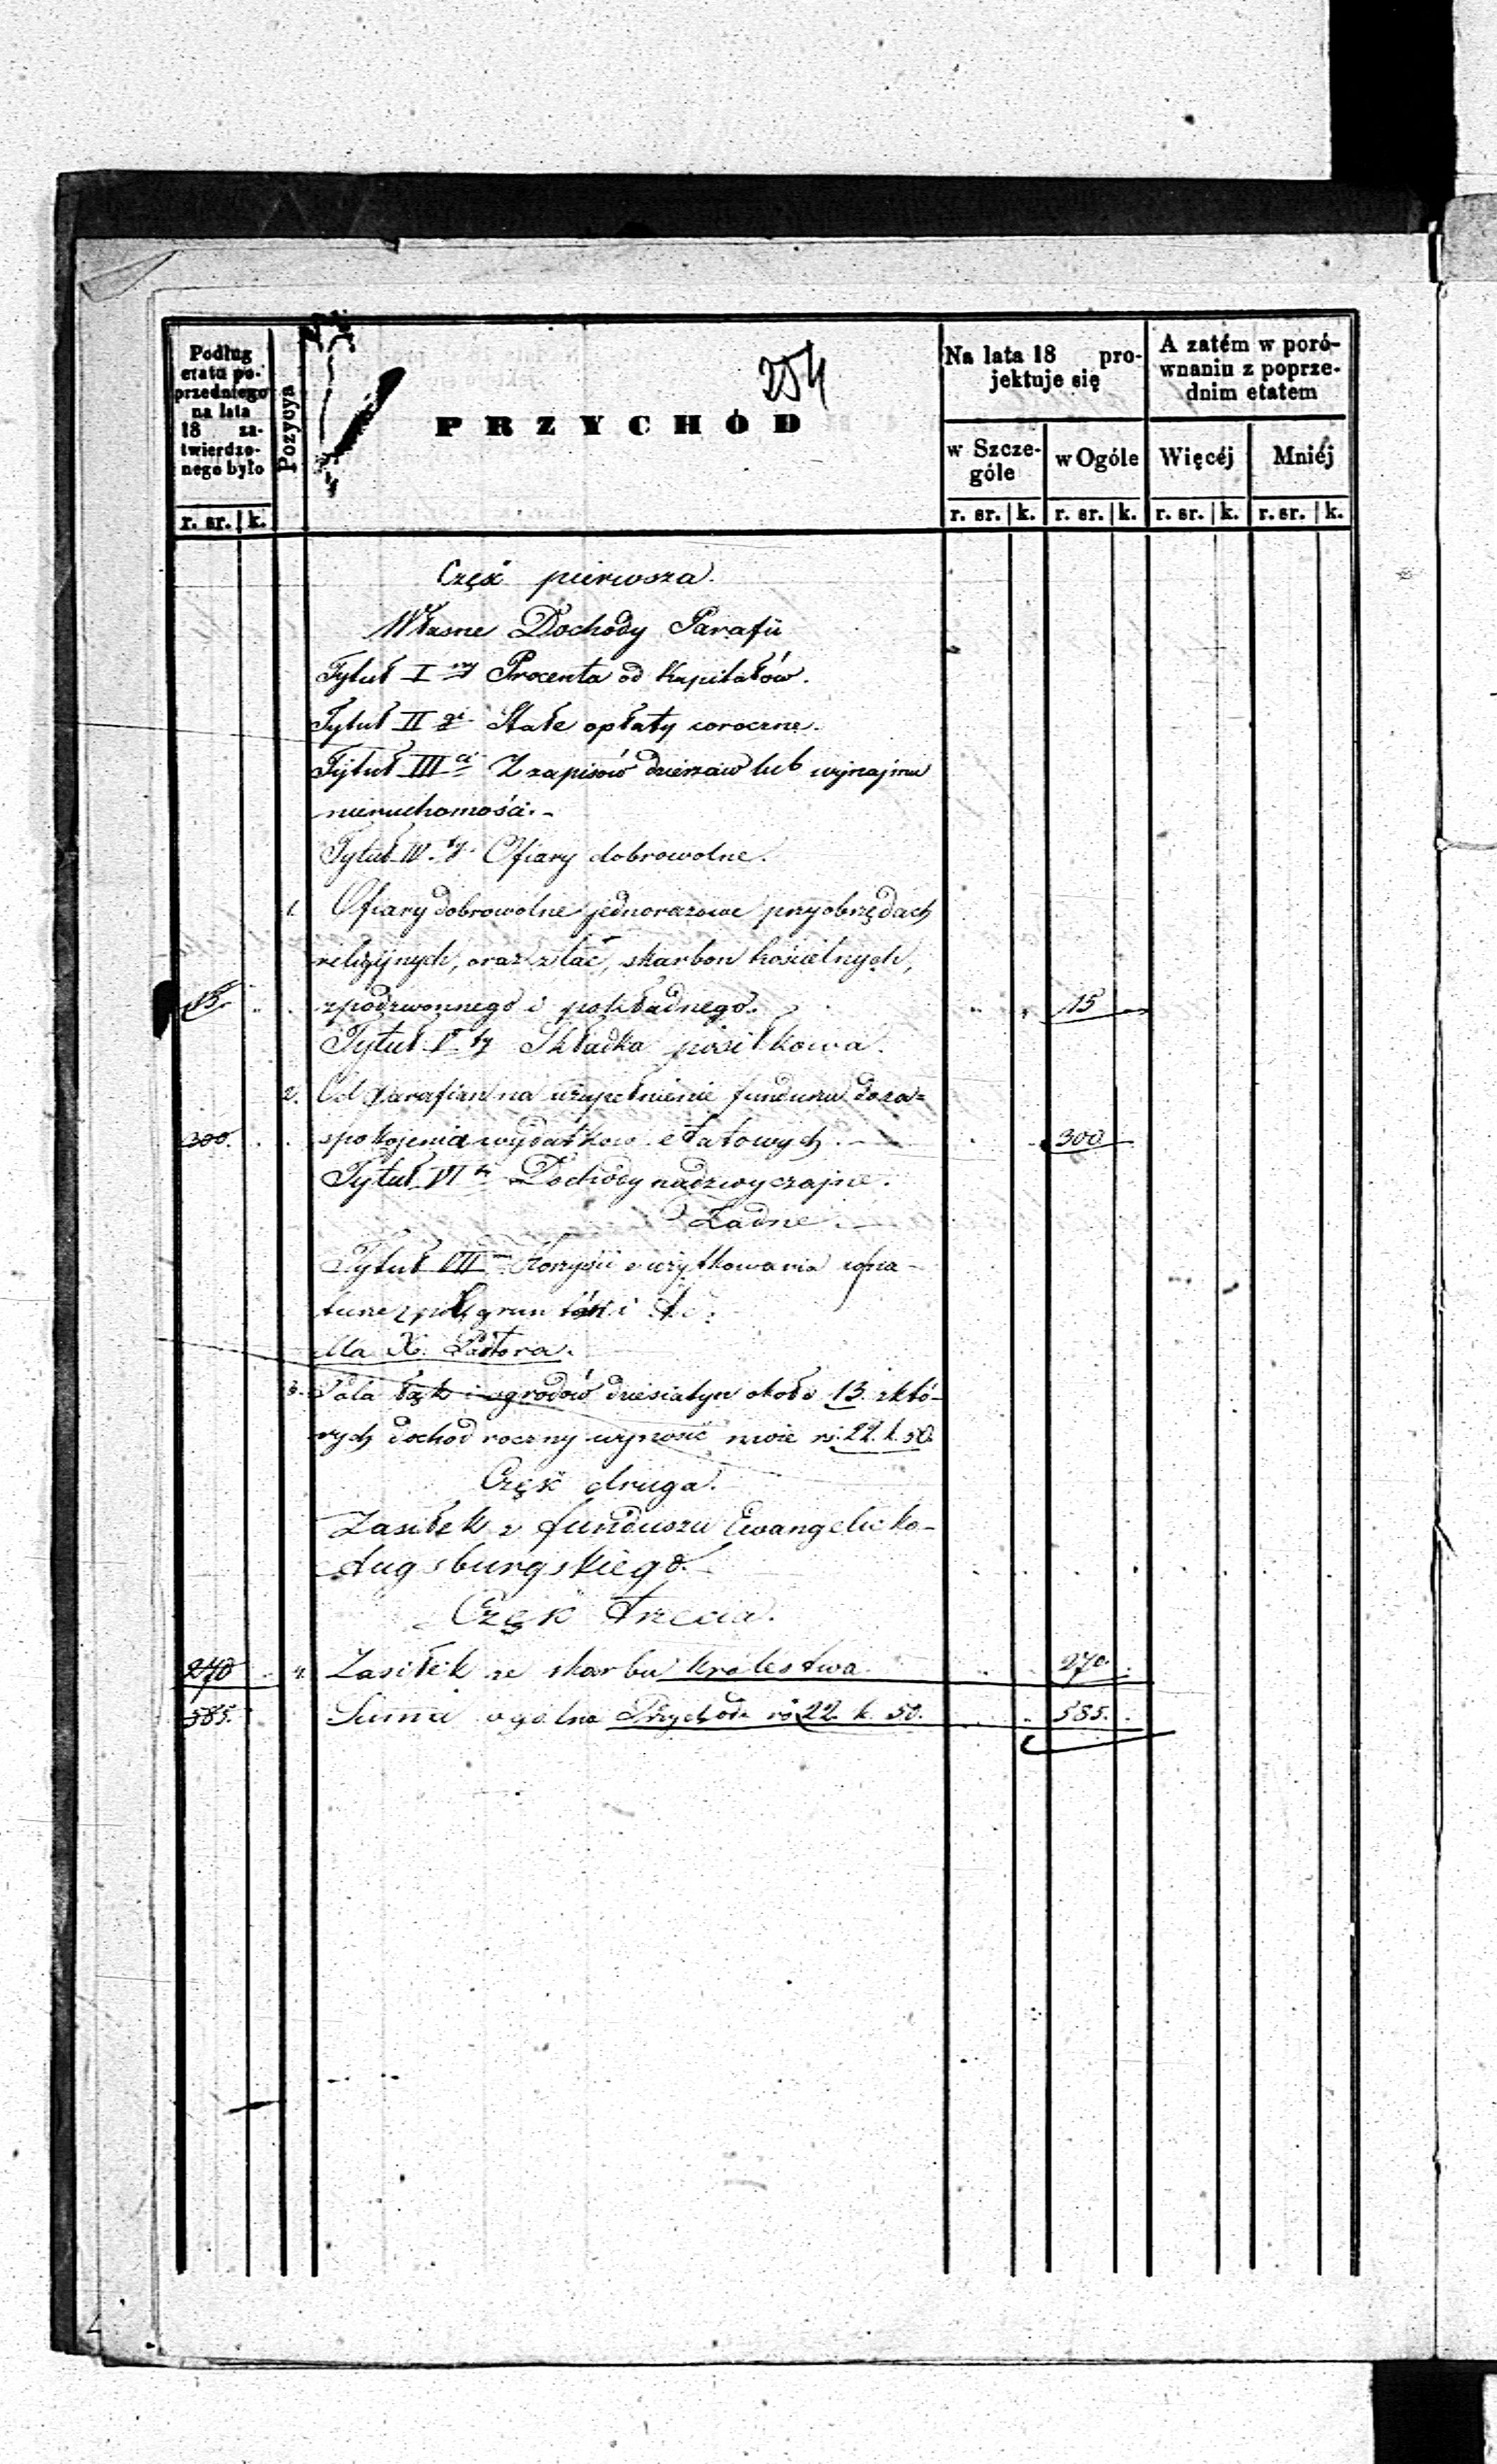 Podług
etatu po-
przedniego
na lata
18 za-
twierdzo-
nego było
r. sr. k.
Pozycya
254
PRZYCHÓD
Na lata 18 pro-
jektuje się
w Szcze-
góle
w Ogóle
r. sr. k. r. sr. k.
A zatém w poró-
wnaniu z poprze-
dnim etatem
Więcéj Mniéj
r. sr. k. r. sr. k.
Część pierwsza.
Własne Dochody Parafii
Tytuł I szy Procenta od Kapitałów.
Tytuł II gi Stałe opłaty coroczne.
Tytuł III ci Z zapisów dzierzaw lub wynajmu
nieruchomości.-
Tytuł IV ty Ofiary dobrowolne.
1. Ofiary dobrowolne jednorazowe przy obrzędach
religijnych, oraz z tac, skarbon kościelnych,
15 z podzwonnego i pokładnego. 15
Tytuł V ty Składka posiłkowa.
2. Od Parafian na uzupełnienie funduszu do za=
300. spokojenia wydatków etatowych. 300
Tytuł VI ty Dochody nadzwyczajne.
Żadne.
Tytuł VII Korzyści z użytkowania w na-
turze z pól, gruntów i t. d.
Dla X. Pastora.
3. Pola łąk i ogrodów dziesiatyn około 13. z któ-
rych dochod roczny wynosić może rs. 22. k. 50.
Część druga.
Zasiłek z funduszu Ewangelicko-
Augsburgskiego.
Część trzecia.
270 4. Zasiłek ze skarbu Królestwa 270.
585. Suma ogólna Przychodu rs 22 k. 50. 585.